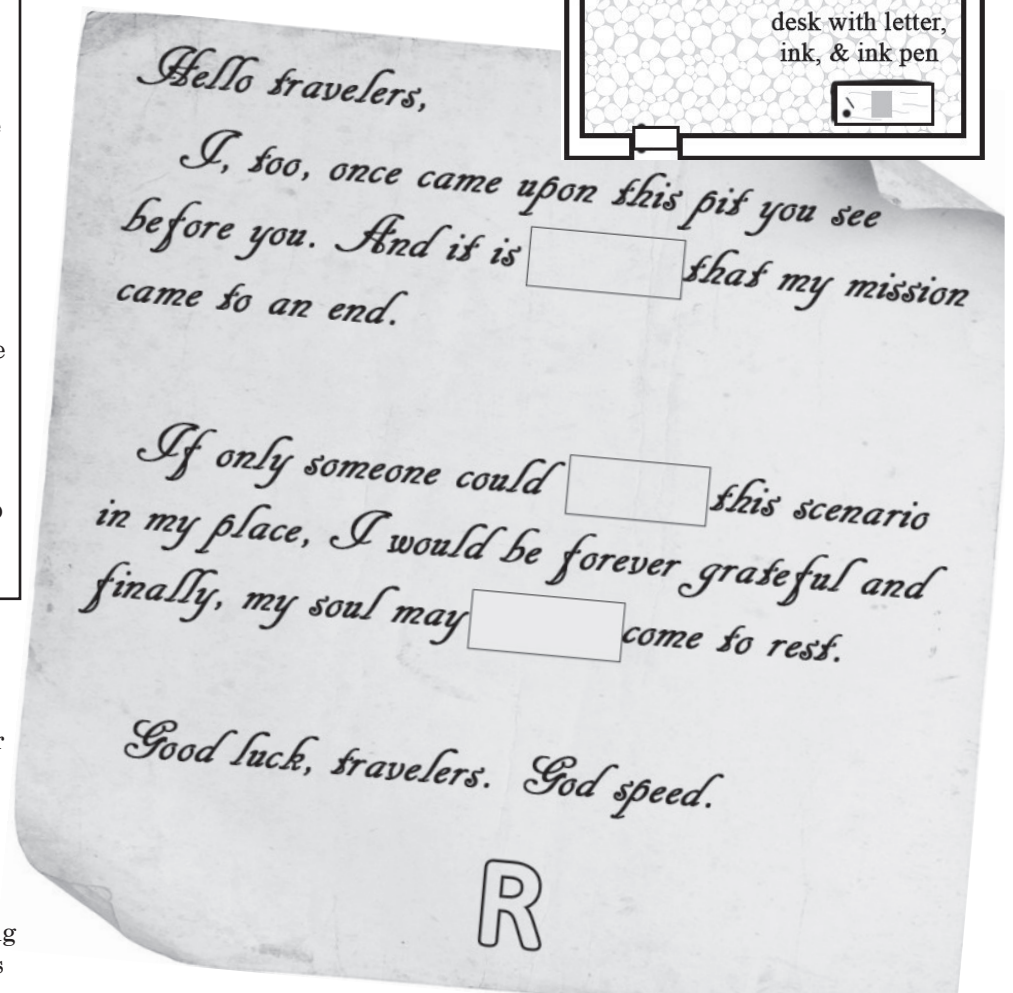 desk with letter,
ink, & ink pen
Hello travelers,
I, too, once came upon this pit you see
before you. And it is that my mission
came to an end.
If only someone could this scenario
in my place, I would be forever grateful and
finally, my soul may come to rest.
Good luck, travelers. God speed.
R